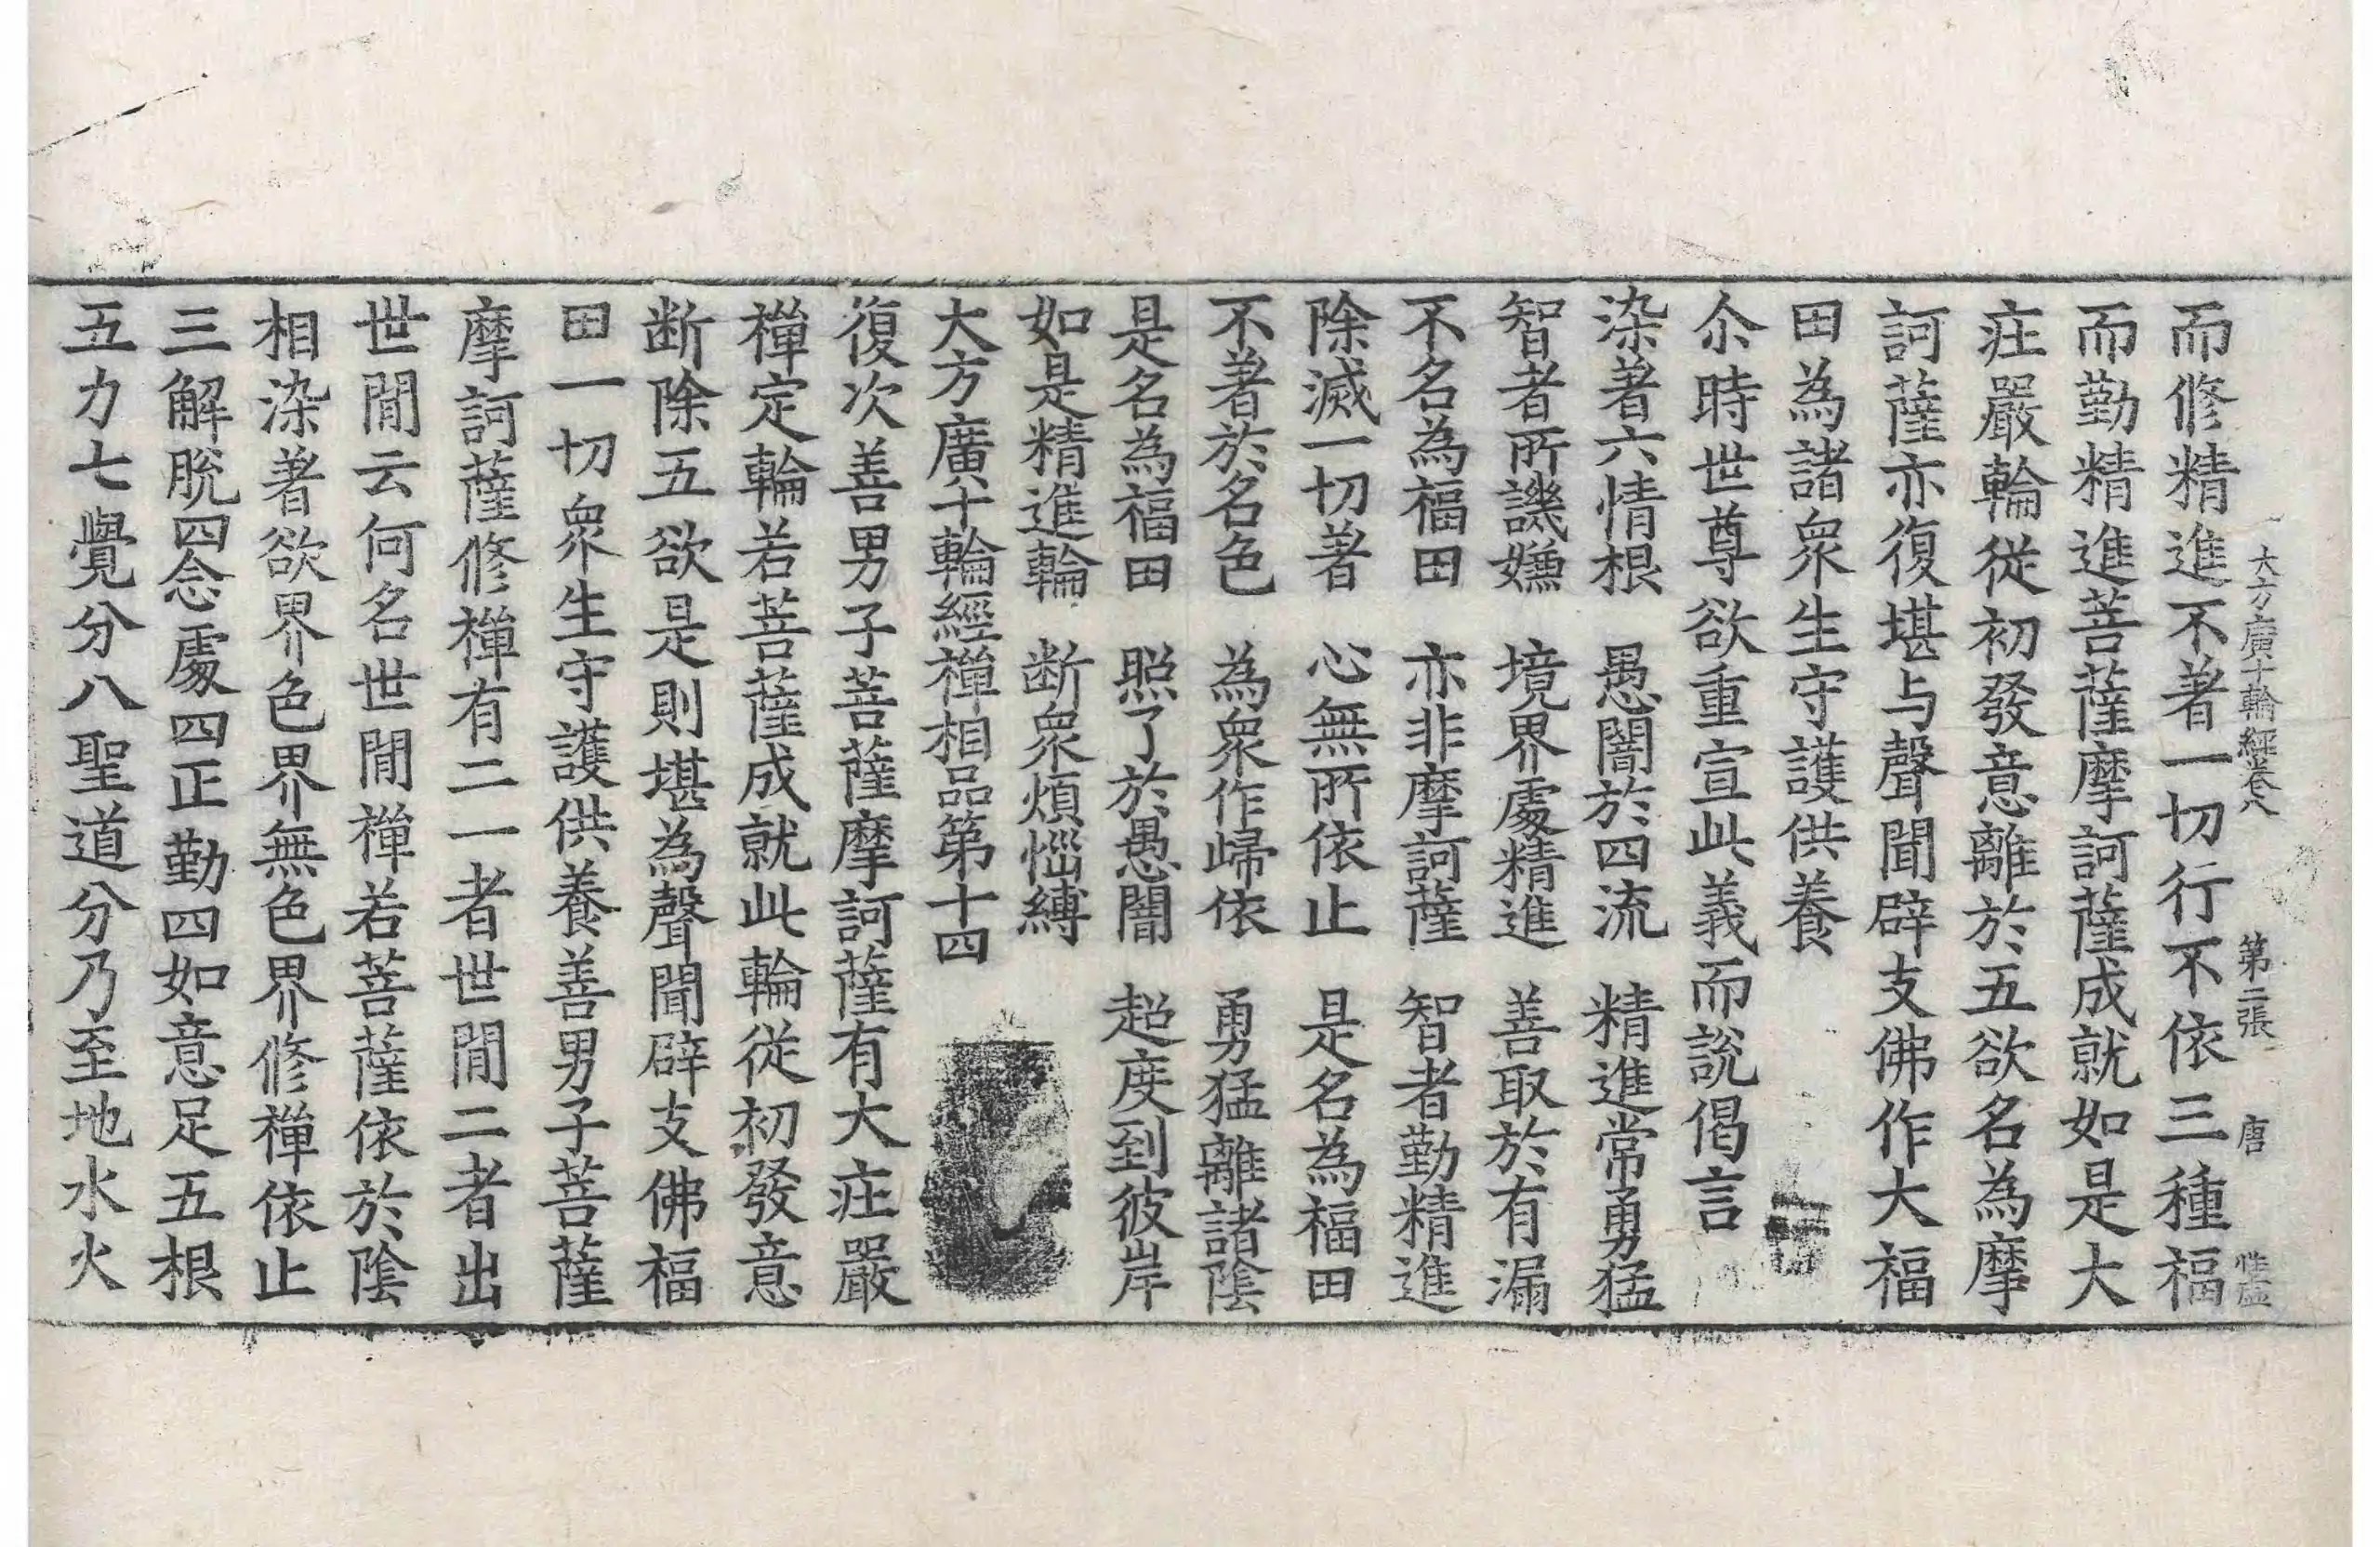 大方廣十輪經卷八 第二張 唐
而修精進不著一切行不依三種福
而勤精進菩薩摩訶薩成就如是大
庄嚴輪從初發意離於五欲名為摩
訶薩亦復堪与聲聞辟支佛作大福
田為諸衆生守護供養
尒時世尊欲重宣此義而說偈言
染著六情根 愚闇於四流 精進常勇猛
智者所譏嫌 境界處精進 善取於有漏
不名為福田 亦非摩訶薩 智者勤精進
除滅一切著 心無所依止 是名為福田
不著於名色 為衆作歸依 勇猛離諸陰
是名為福田 照了於愚闇 超度到彼岸
如是精進輪 断衆煩惱縛
大方廣十輪經禪相品第十四
復次善男子菩薩摩訶薩有大庄嚴
禪定輪若菩薩成就此輪從初發意
断除五欲是則堪為聲聞辟支佛福
田一切衆生守護供養善男子菩薩
摩訶薩修禪有二一者世間二者出
世間云何名世間禪若菩薩依於陰
相染著欲界色界無色界修禪依止
三解脫四念處四正勤四如意足五根
五力七覺分八聖道分乃至地水火